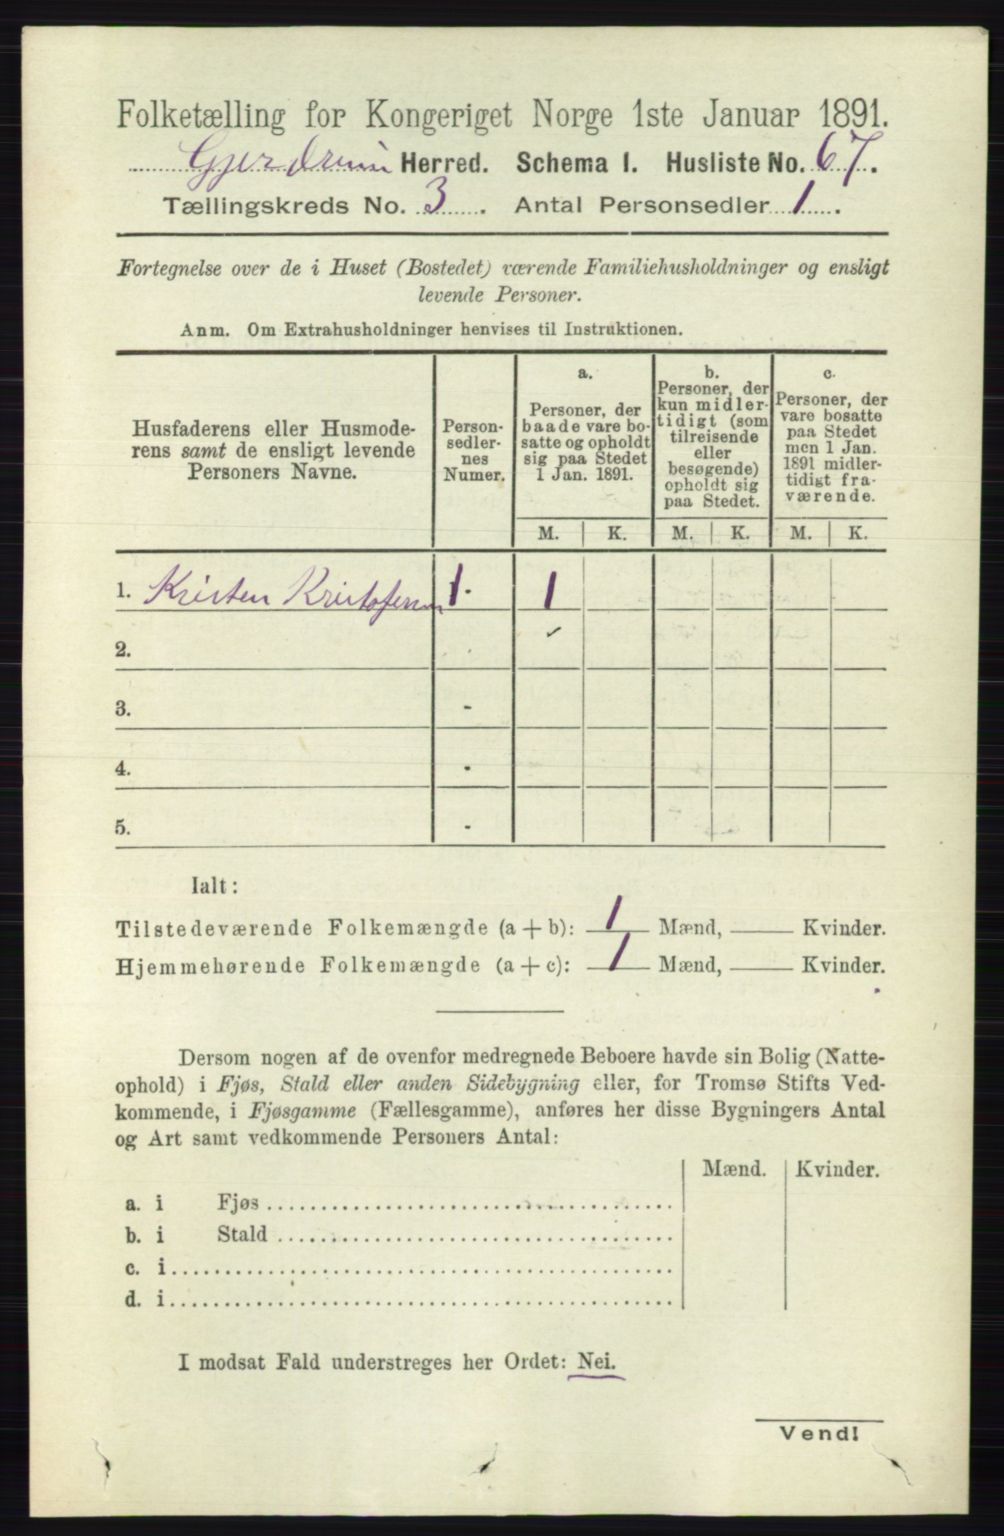 Folketælling for Kongeriget Norge 1ste Januar 1891.
Gjerdrum Herred. Schema I. Husliste No. 67.
Tællingskreds No. 3. Antal Personsedler 1.
Fortegnelse over de i Huset (Bostedet) værende Familiehusholdninger og ensligt
levende Personer.
Anm. Om Extrahusholdninger henvises til Instruktionen.
Husfaderens eller Husmode-
rens samt de ensligt levende
Personers Navne.
Person-
sedler-
nes
Numer.
a.
Personer, der
baade vare bo-
satte og opholdt
sig paa Stedet
1 Jan. 1891.
b.
Personer, der
kun midler-
tidigt (som
tilreisende
eller
besøgende)
opholdt sig
paa Stedet.
c.
Personer, der
vare bosatte
paa Stedet
men 1 Jan.
1891 midler-
tidigt fra-
værende.
M. K. M. K. M. K.
1. Kristen Kristofersen 1. 1
2.
3. -
4. -
5. -
Ialt:
Tilstedeværende Folkemængde (a + b): 1 Mænd, Kvinder.
Hjemmehørende Folkemængde (a + c): 1 Mænd, Kvinder.
Dersom nogen af de ovenfor medregnede Beboere havde sin Bolig (Natte-
ophold) i Fjøs, Stald eller anden Sidebygning eller, for Tromsø Stifts Ved-
kommende, i Fjøsgamme (Fællesgamme), anføres her disse Bygningers Antal
og Art samt vedkommende Personers Antal:
Mænd. Kvinder.
a. i Fjøs
b. i Stald
c. i
d. i
I modsat Fald understreges her Ordet: Nei.
Vend!